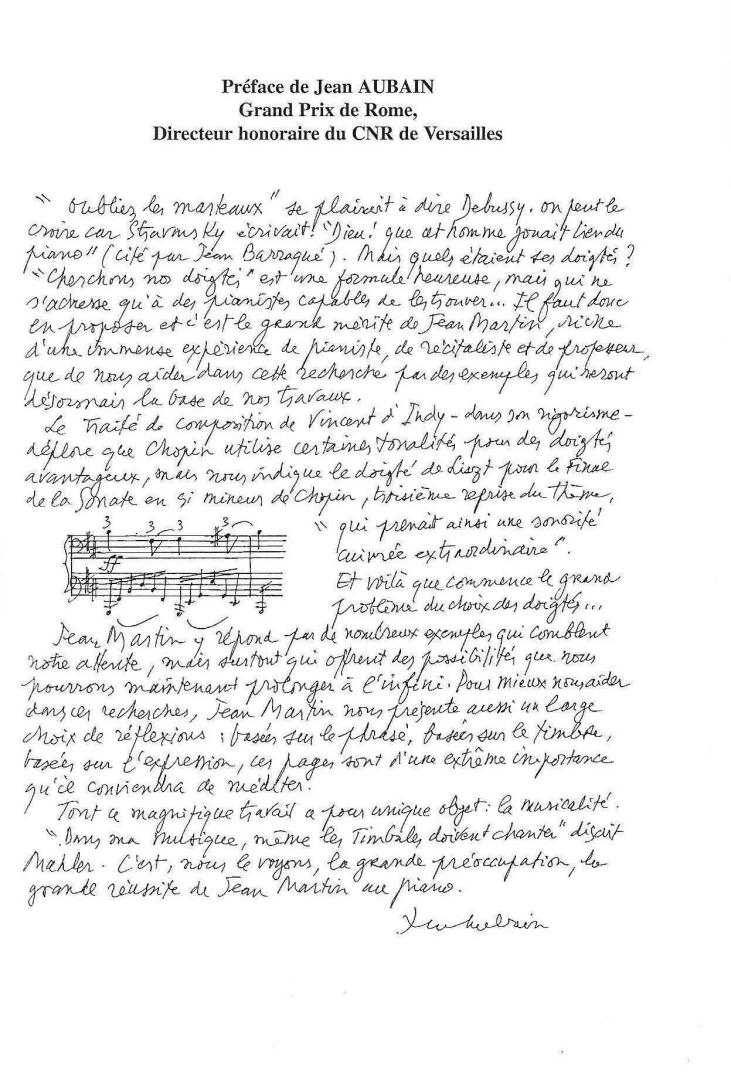 Préface de Jean AUBAIN
Grand Prix de Rome,
Directeur honoraire du CNR de Versailles
"Oubliez les marteaux" se plaisait à dire Debussy. On peut le
croire car Stravinsky écrivait: "Dieu! que cet homme jouait bien du
piano" (cité par Jean Barraqué). Mais quels étaient ses doigtés?
"Cherchons nos doigtés" est une formule heureuse, mais qui ne
s'adresse qu'à des pianistes capables de les trouver... Il faut donc
en proposer et c'est le grand mérite de Jean Martin, riche
d'une immense expérience de pianiste, de récitaliste et de professeur,
que de nous aider dans cette recherche par des exemples qui seront
désormais la base de nos travaux.
Le Traité de composition de Vincent d'Indy - dans son rigorisme -
déplore que Chopin utilise certaines tonalités pour des doigtés
avantageux, mais nous indique le doigté de Liszt pour le Final
de la Sonate en si mineur de Chopin, troisième reprise du thème,
3 3 3 3
ff
" qui prenait ainsi une sonorité
cuivrée extraordinaire".
Et voilà que commence le grand
problème du choix des doigtés...
Jean Martin y répond par de nombreux exemples qui comblent
notre attente, mais surtout qui offrent des possibilités que nous
pourrons maintenant prolonger à l'infini. Pour mieux nous aider
dans ces recherches, Jean Martin nous présente aussi un large
choix de réflexions : basées sur le phrasé, basées sur le timbre,
basées sur l'expression, ces pages sont d'une extrême importance
qu'il conviendra de méditer.
Tout ce magnifique travail a pour unique objet : la musicalité.
"Dans ma musique, même les Timbales doivent chanter" disait
Mahler. C'est, nous le voyons, la grande préoccupation, la
grande réussite de Jean Martin au piano.
Jean Aubain